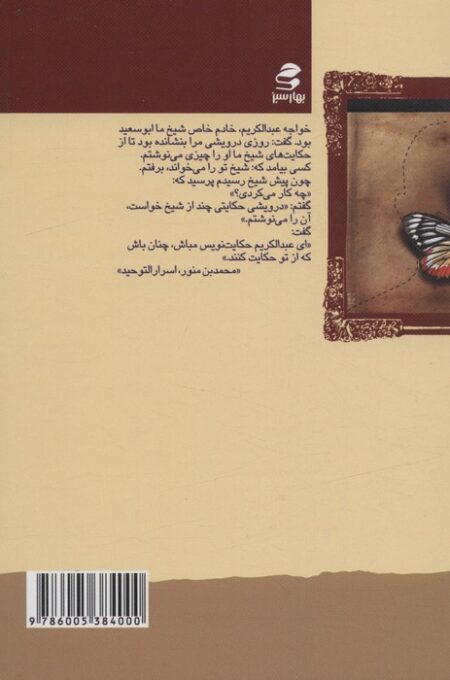 بهار سبز
خواجه عبدالکریم، خادم خاص شیخ ما ابوسعید
بود. گفت: روزی درویشی مرا بنشانده بود تا از
حکایت‌های شیخ ما او را چیزی می‌نوشتم.
کسی بیامد که: شیخ تو را می‌خواند، برفتم.
چون پیش شیخ رسیدم پرسید که:
«چه کار می‌کردی؟»
گفتم: «درویشی حکایتی چند از شیخ خواست،
آن را می‌نوشتم.»
گفت:
«ای عبدالکریم حکایت‌نویس مباش، چنان باش
که از تو حکایت کنند.»
«محمدبن منور، اسرارالتوحید»
9 786005 384000